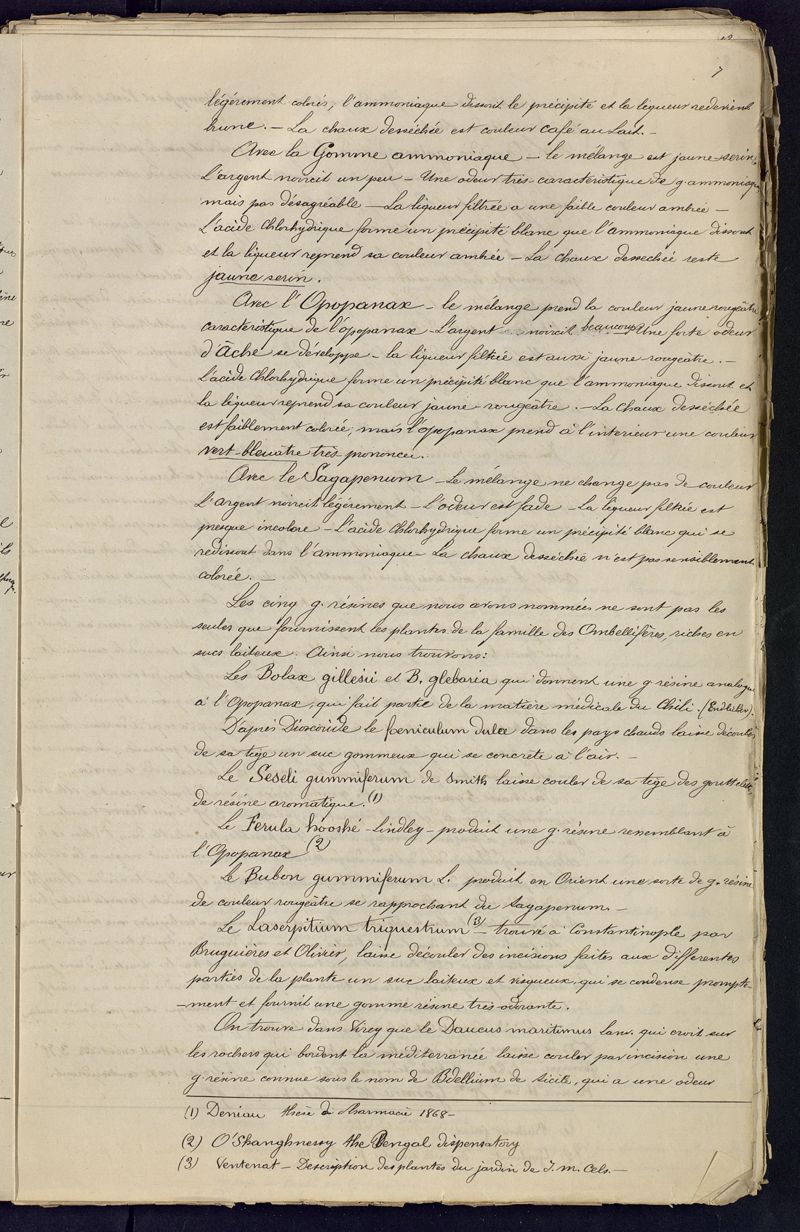 7
légérement colorés, l'ammoniaque dissout le précipité et la liqueur redevient
brune. — La chaux desséchée est couleur café au lait. —
Avec la Gomme ammoniaque — le mélange est jaune-serin.
L'argent noircit un peu — Une odeur très caractéristique de g. ammoniaque
mais pas désagréable — La liqueur filtrée a une faible couleur ambrée —
L'acide Chlorhydrique forme un précipité blanc que l'ammoniaque dissout
et la liqueur reprend sa couleur ambrée — La chaux desséchée reste
jaune serin.
Avec l'Opopanax — le mélange prend la couleur jaune rougeâtre
caractéristique de l'opopanax — L'argent noircit beaucoup — Une forte odeur
d'Ache se développe — la liqueur filtrée est aussi jaune rougeâtre. —
L'acide Chlorhydrique forme un précipité blanc que l'ammoniaque dissout et
la liqueur reprend sa couleur jaune-rougeâtre. — La Chaux desséchée
est faiblement colorée, mais l'Opopanax prend à l'interieur une couleur
vert-bleuâtre très prononcée.
Avec le Sagapenum — Le mélange ne change pas de couleur
L'argent noircit légérement — L'odeur est fade — La liqueur filtrée est
presque incolore — L'acide Chlorhydrique forme un précipité blanc qui se
redissout dans l'ammoniaque — La chaux desséchée n'est pas sensiblement
colorée. —
Les cinq g. résines que nous avons nommées ne sont pas les
seules que fournissent les plantes de la famille des Ombellifères, riches en
sucs laiteux. Ainsi nous trouvons:
Les Bolax gillesii et B. glebaria qui donnent une g. résine analogue
à l'Opopanax, qui fait partie de la matière médicale du Chili. (Endlicher).
D'après Dioscoride le foeniculum dulce dans les pays chauds laisse découler
de sa tige un suc gommeux qui se concrète à l'air. —
Le Seseli gummiferum de Smith laisse couler de sa tige des gouttelettes
de résine aromatique. (1)
Le Ferula hooshé — Lindley — produit une g. résine ressemblant à
l'Opopanax (2)
Le Bubon gummiferum L. produit en Orient une sorte de g. résine
de couleur rougeâtre se rapprochant du Sagapenum. —
Le Laserpitium triquestrum (3) — trouvé à Constantinople par
Bruguières et Olivier, laisse découler des incisions faites aux differentes
parties de la plante un suc laiteux et visqueux, qui se condense prompte-
-ment et fournit une gomme résine très odorante.
On trouve dans Virey que le Daucus maritimus Lam. qui croit sur
les rochers qui bordent la méditerranée laisse couler par incision une
g. résine connue sous le nom de Bdellium de Sicile, qui a une odeur
(1) Deniau thèse de Pharmacie 1868 —
(2) O'Shanghnessy the Bengal dispensatory
(3) Ventenat — Description des plantes du jardin de J. M. Cels. —